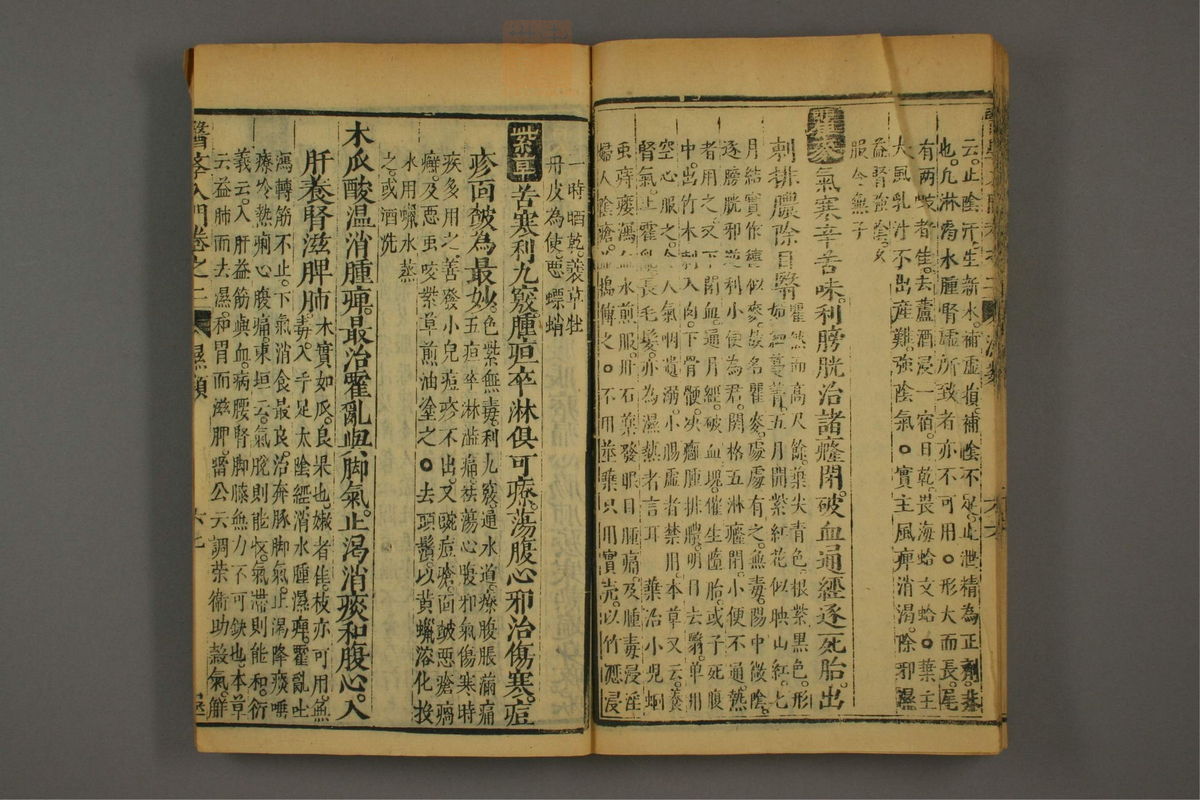 云止陰汗生新水補虛損補陰不足止泄精為正劑
也凡淋渴水腫腎虛所致者亦不可用○形大而長尾
有兩岐者佳去蘆酒浸一宿日乾畏海蛤文蛤○葉主
大風乳汁不出產難強陰氣○實主風痺消渴除邪濕
益腎強陰久
服令無子
瞿麥氣寒辛苦味利膀胱治諸癃閉破血通經逐死胎出
刺排膿除目翳瞿然而高尺餘葉尖青色根紫黑色形
如細蔓菁五月開紫紅花似映山紅七
月結實作穗似麥故名瞿麥處處有之無毒陽中微陰
逐膀胱邪逆利小便為君關格五淋癃閉小便不通熟
者用之又下閉血通月經破血塊催生墮胎或子死腹
中出竹木刺入肉下骨骾決癰腫排膿明目去翳單用
空心服之令人氣咽遺溺小腸虛者禁用本草又云養
腎氣止霍亂長毛髮亦為濕熱者言耳 葉治小兒蛔
虫痔瘻瀉血水煎服丹石藥發眼目腫痛及腫毒浸淫
婦人陰瘡並搗傅之○不用莖葉只用實壳以竹瀝浸
一時晒乾蓑草牡
丹皮為使惡螵蛸
紫草苦寒利九竅腫疸卒淋俱可療蕩腹心邪治傷寒痘
疹面皶為最妙色紫無毒利九竅通水道療腹脹滿痛
五疸卒淋澁痛袪蕩心腹邪氣傷寒時
疾多用之善發小兒痘疹不出又豌痘瘡面皶惡瘡瘑
癬及惡虫咬紫草煎油塗之○去頭鬚以黃蠟溶化投
水用囇水蒸
之或酒洗
木瓜酸溫消腫痺最治霍亂與脚氣止渴消痰和腹心入
肝養腎滋脾肺木實如瓜良果也嫩者佳枝亦可用無
毒入手足太陰經消水腫濕痺霍亂吐
瀉轉筋不止下氣消食最良治奔豚脚氣止渴降痰唾
療冷熱痢心腹痛東垣云氣脫則能收氣滯則能和衍
義云入肝益筋與血病腰腎脚膝無力不可缺也本草
云益肺而去濕和胃而滋脾雷公云調榮衛助穀氣觧
醫學入門卷之二
濕類
六七